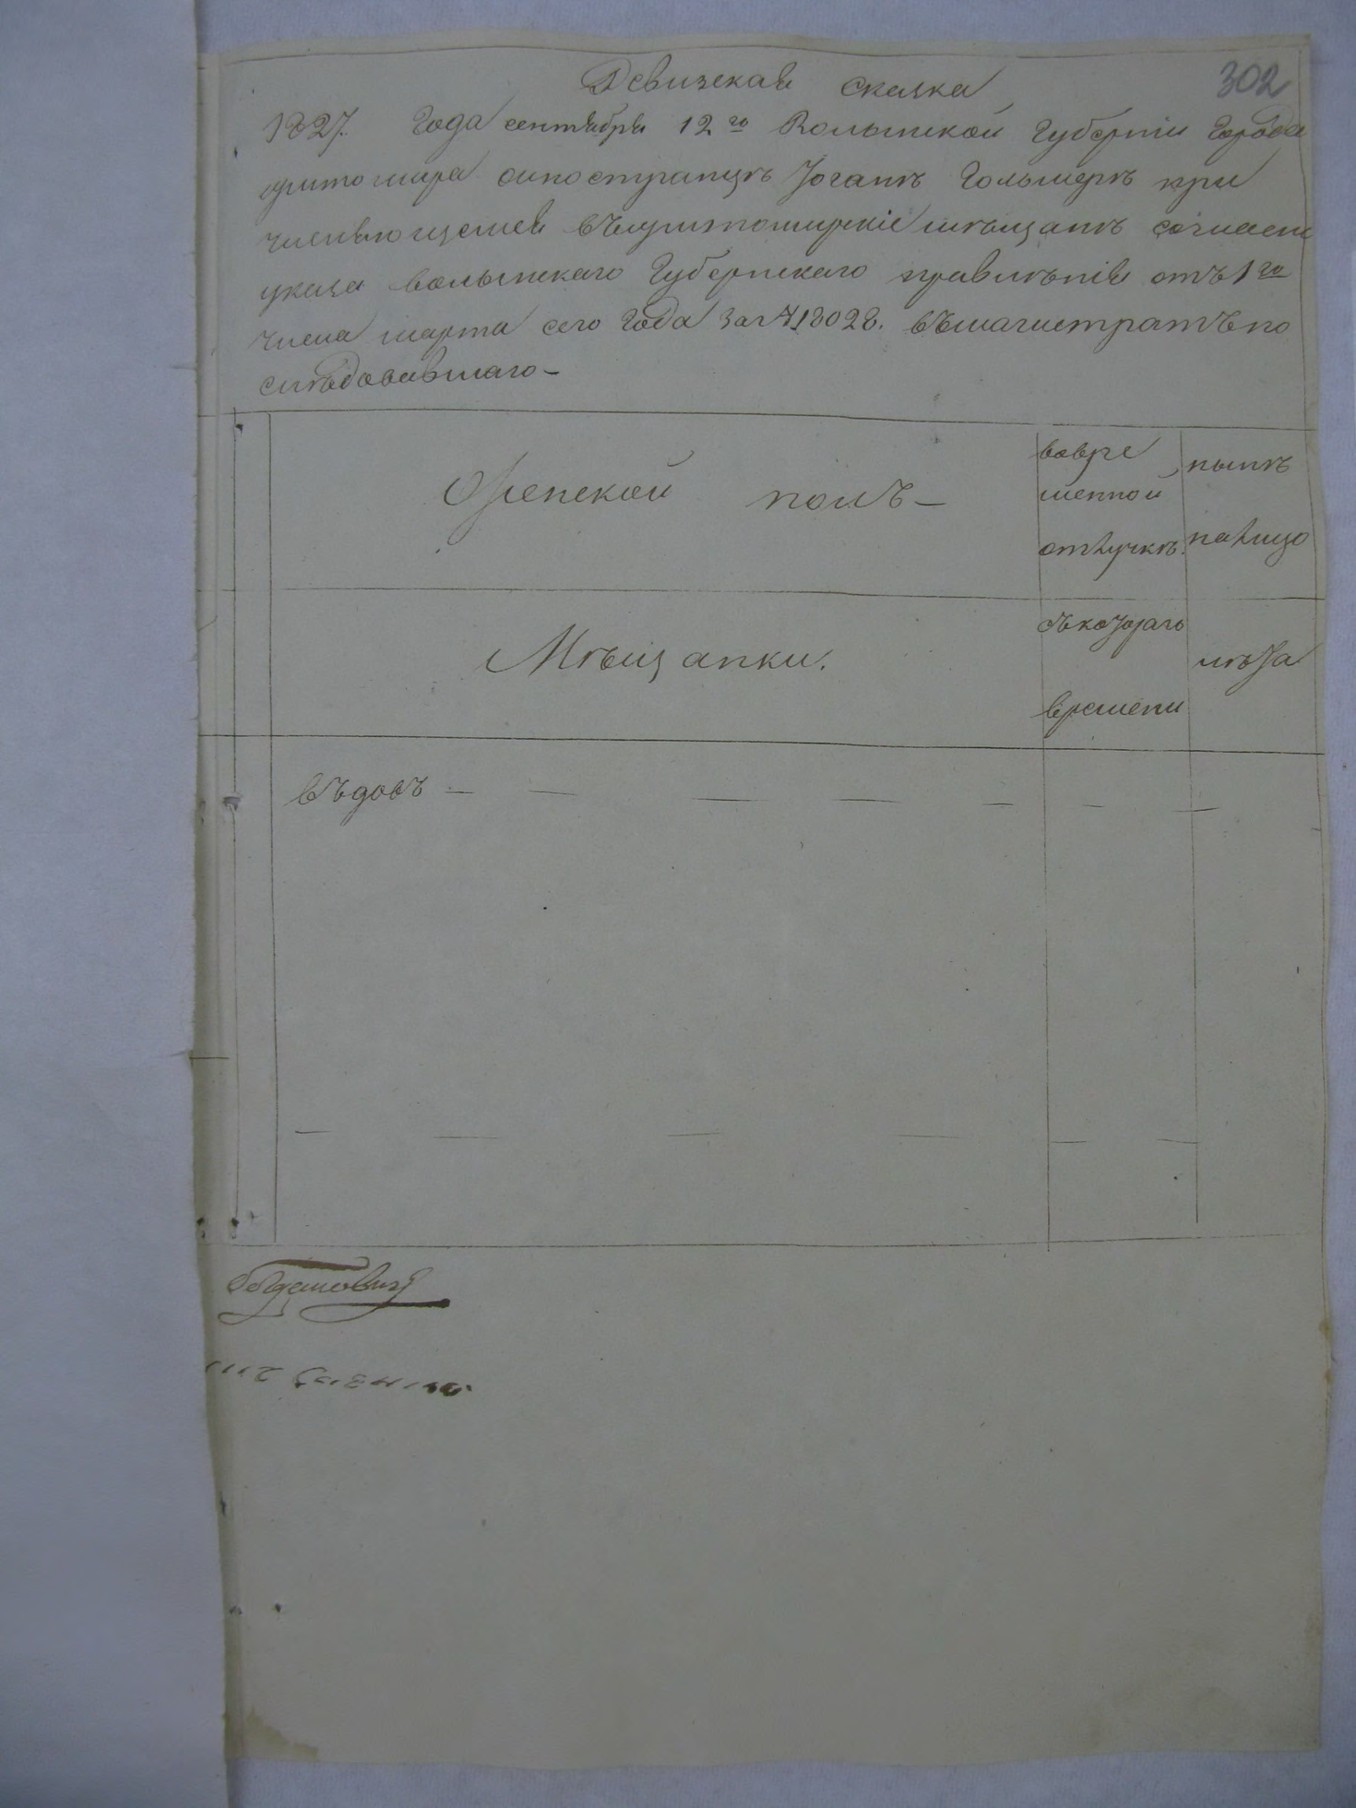 Ревизская сказка
302
1827. Года сентября 12го Волынской Губернiи Города
житомира оиностранцѣ Іоганѣ Гольмерѣ при
числяющемся въжитомирскiе мѣщанѣ согласно
указа волынского Губернского правленiя отъ 1го
числа марта сего Года за №18028. въмагистратъ по
слѣдовавшаго-
Женской полъ-
вовре
менной
отлучкѣ.
нынѣ
налицо
Мѣщанки.
съкоторого
времени
лѣта
въдовъ -